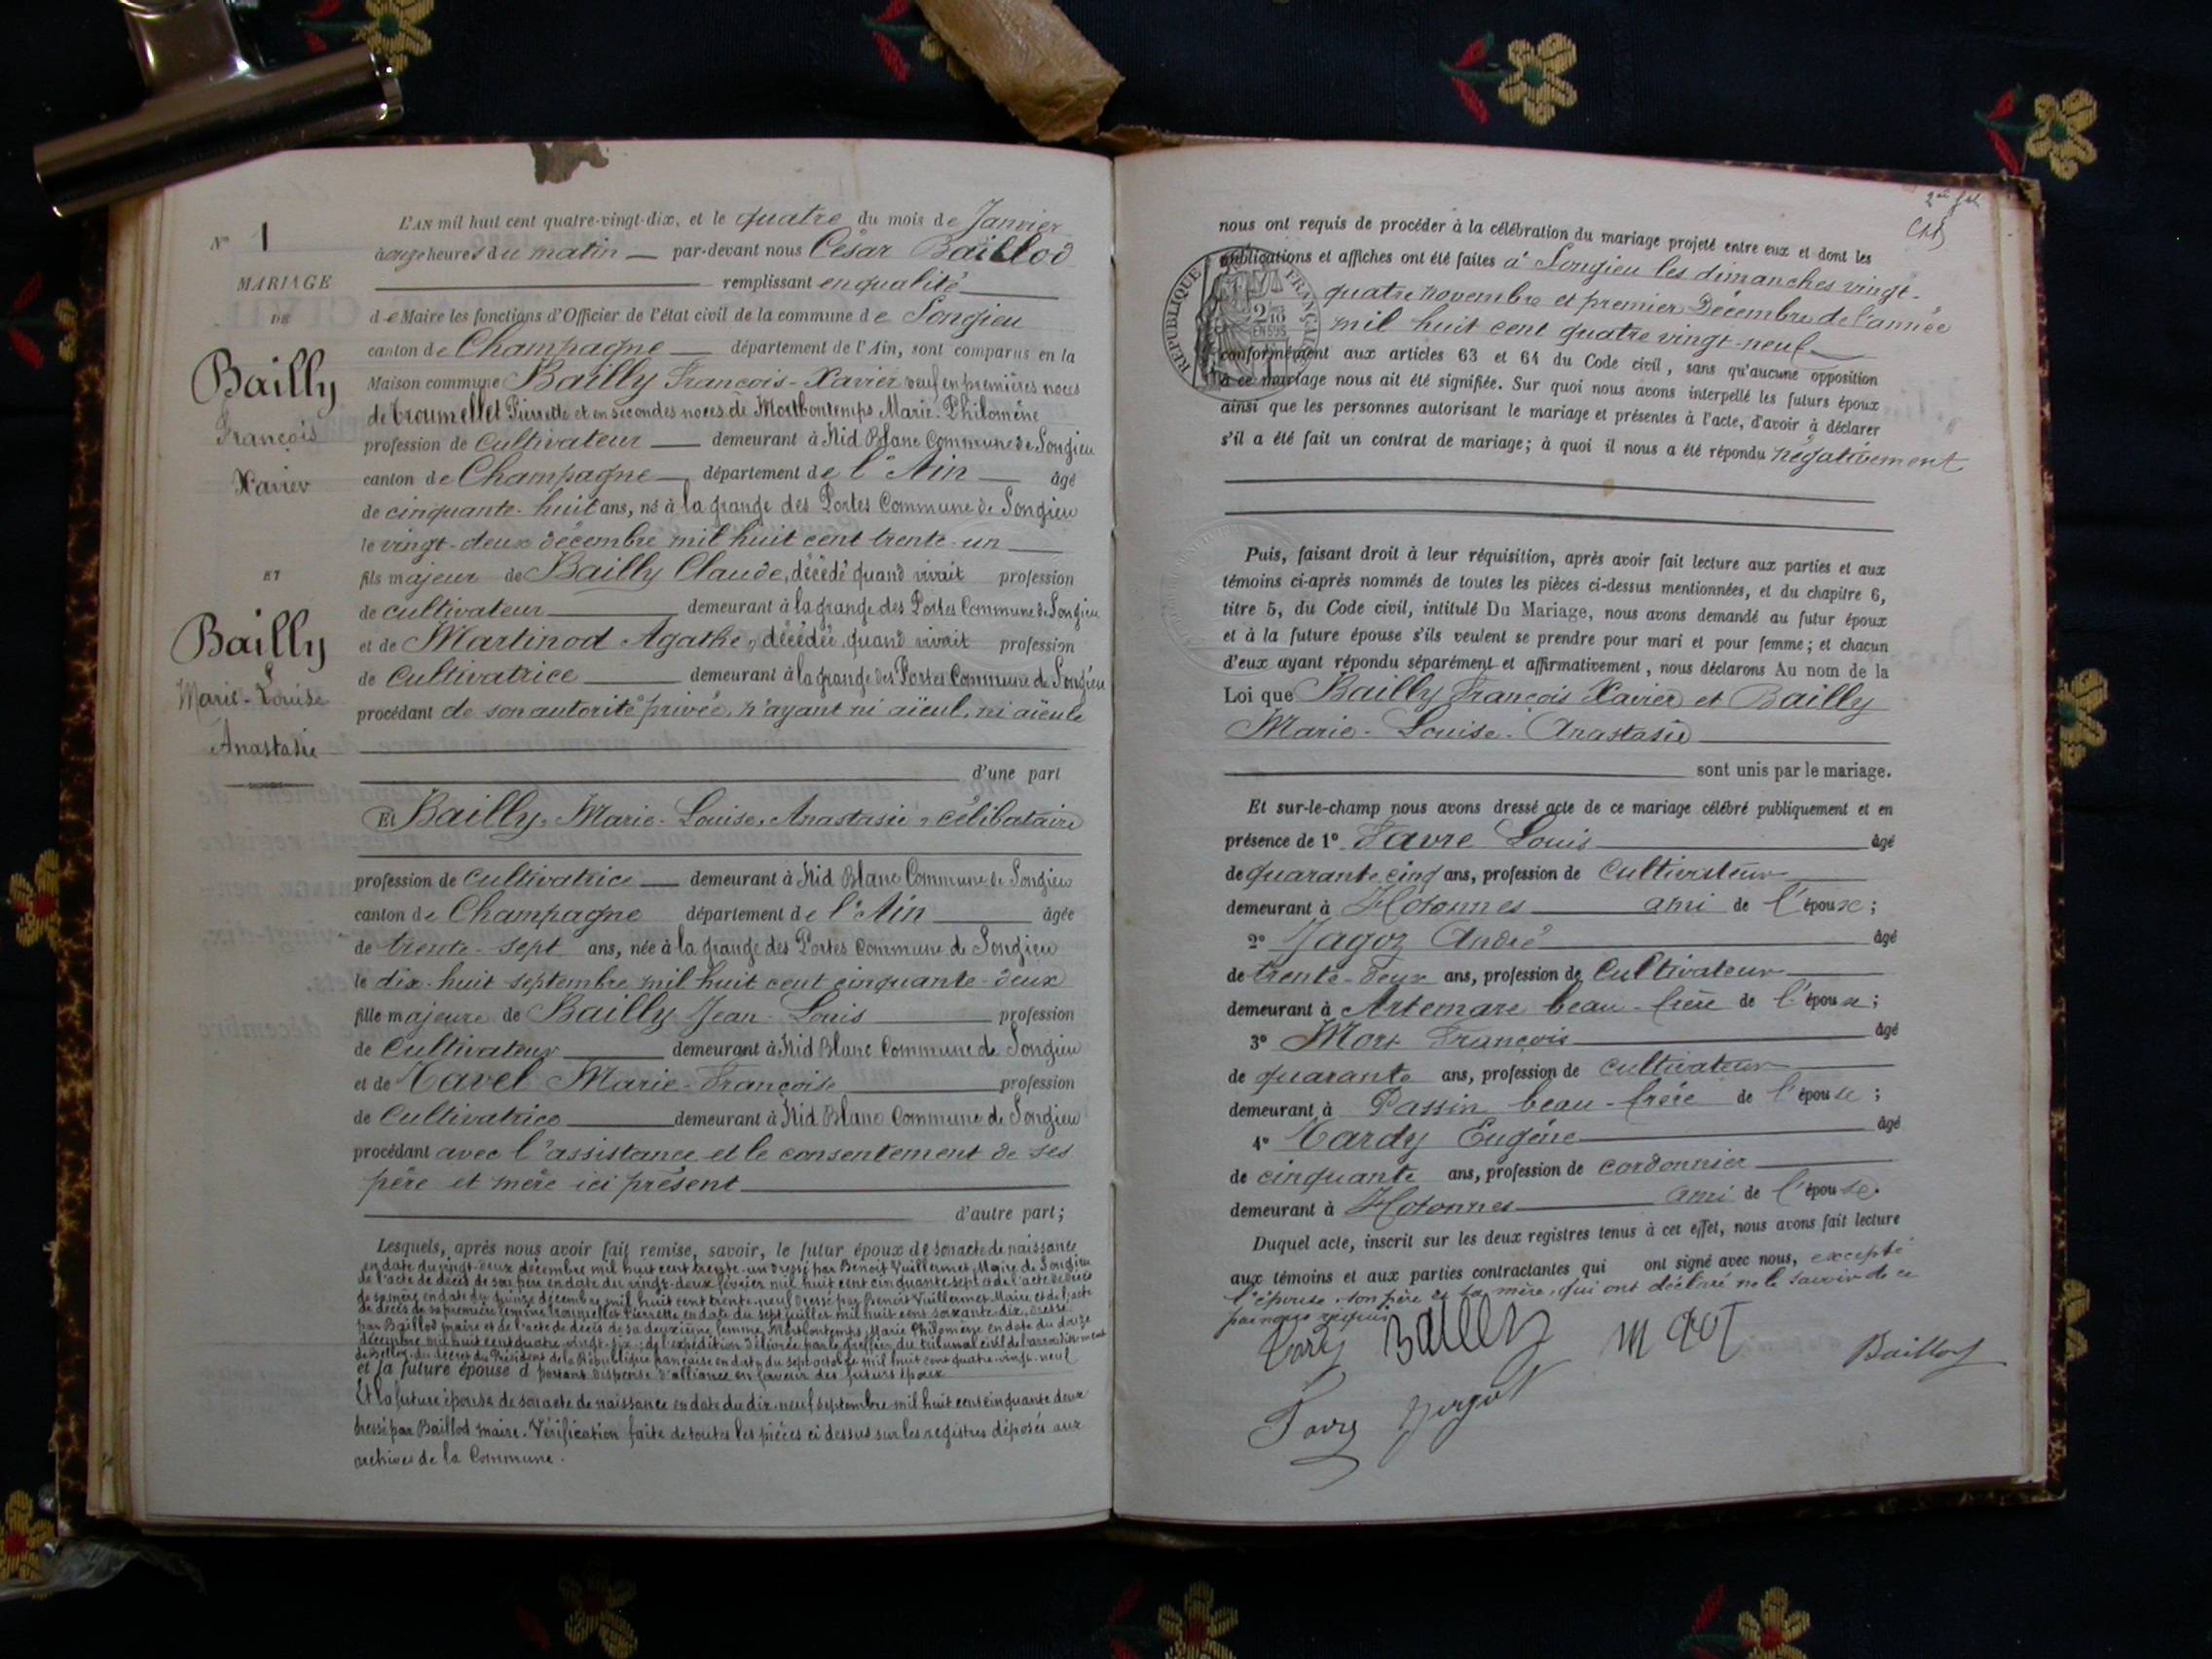 N° 1
MARIAGE
DE
Bailly
François
Xavier
ET
Bailly
Marie-Louise
Anastasie
L'AN mil huit cent quatre-vingt-dix, et le quatre du mois de Janvier
à onze heures du matin — par-devant nous César Baillod
remplissant en qualité
de Maire les fonctions d'Officier de l'état civil de la commune de Songieu
canton de Champagne — département de l'Ain, sont comparus en la
Maison commune Bailly François-Xavier veuf en premières noces
de Troumellet Pierrette et en secondes noces de Montbontemps Marie-Philomène
profession de cultivateur — demeurant à Nid Blanc Commune de Songieu
canton de Champagne — département de l'Ain — âgé
de cinquante-huit ans, né à la grange des Portes Commune de Songieu
le vingt-deux décembre mil huit cent trente-un
fils majeur de Bailly Claude, décédé quand vivait profession
de cultivateur demeurant à la grange des Portes Commune de Songieu
et de Martinod Agathe, décédée quand vivait profession
de cultivatrice demeurant à la grange des Portes Commune de Songieu
procédant de son autorité privée, n'ayant ni aïeul, ni aïeule
d'une part
Et Bailly, Marie-Louise, Anastasie, célibataire
profession de cultivatrice — demeurant à Nid Blanc Commune de Songieu
canton de Champagne département de l'Ain âgée
de trente-sept ans, née à la grange des Portes Commune de Songieu
le dix-huit septembre mil huit cent cinquante-deux
fille majeure de Bailly Jean-Louis profession
de Cultivateur demeurant à Nid Blanc Commune de Songieu
et de Tavel Marie-Françoise profession
de Cultivatrice demeurant à Nid Blanc Commune de Songieu
procédant avec l'assistance et le consentement de ses
père et mère ici présent
d'autre part;
Lesquels, après nous avoir fait remise, savoir, le futur époux de son acte de naissance
en date du vingt-deux décembre mil huit cent trente-un dressé par Benoit Vuillermet Maire de Songieu
de l'acte de décès de son père en date du vingt-deux février mil huit cent cinquante sept et de l'acte de décès
de sa mère en date du quinze décembre mil huit cent trente-neuf dressé par Benoit Vuillermet Maire et de l'acte
de décès de sa première femme Troumellet Pierrette en date du sept juillet mil huit cent soixante-dix, dressé
par Baillod maire et de l'acte de décès de sa deuxième femme Montbontemps Marie Philomène en date du douze
décembre mil huit cent quatre-vingt-six; de l'expédition délivrée par le greffier du tribunal civil de l'arrondissement
de Belley du décret du Président de la République française en date du sept octobre mil huit cent quatre-vingt-neuf
et la future épouse d portant dispense d'alliance en faveur des futurs époux
Et la future épouse de son acte de naissance en date du dix-neuf septembre mil huit cent cinquante deux
dressé par Baillod maire. Vérification faite de toutes les pièces ci dessus sur les registres déposés aux
archives de la Commune.
nous ont requis de procéder à la célébration du mariage projeté entre eux et dont les
publications et affiches ont été faites à Songieu les dimanches vingt-
quatre novembre et premier Décembre de l'année
mil huit cent quatre vingt-neuf
conformément aux articles 63 et 64 du Code civil, sans qu'aucune opposition
à ce mariage nous ait été signifiée. Sur quoi nous avons interpellé les futurs époux
ainsi que les personnes autorisant le mariage et présentes à l'acte, d'avoir à déclarer
s'il a été fait un contrat de mariage; à quoi il nous a été répondu négativement
REPUBLIQUE FRANÇAISE
Puis, faisant droit à leur réquisition, après avoir fait lecture aux parties et aux
témoins ci-après nommés de toutes les pièces ci-dessus mentionnées, et du chapitre 6,
titre 5, du Code civil, intitulé Du Mariage, nous avons demandé au futur époux
et à la future épouse s'ils veulent se prendre pour mari et pour femme; et chacun
d'eux ayant répondu séparément et affirmativement, nous déclarons Au nom de la
Loi que Bailly François Xavier et Bailly
Marie-Louise-Anastasie
sont unis par le mariage.
Et sur-le-champ nous avons dressé acte de ce mariage célébré publiquement et en
présence de 1° Favre Louis âgé
de quarante cinq ans, profession de cultivateur
demeurant à Hotonnes ami de l'épouse;
2° Jagoz André âgé
de trente-deux ans, profession de Cultivateur
demeurant à Artemare beau-frère de l'épouse;
3° Mort François âgé
de quarante ans, profession de cultivateur
demeurant à Passin beau-frère de l'épouse;
4° Tardy Eugène âgé
de cinquante ans, profession de cordonnier
demeurant à Hotonnes ami de l'épouse.
Duquel acte, inscrit sur les deux registres tenus à cet effet, nous avons fait lecture
aux témoins et aux parties contractantes qui ont signé avec nous, excepté
l'épouse, son père et sa mère, qui ont déclaré ne le savoir de ce
par nous requis
Bailly Baillod
Favre